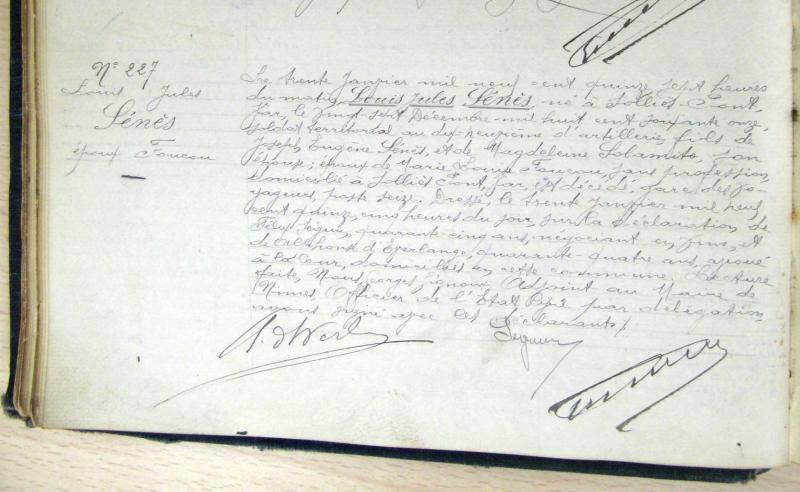 N° 227
Louis Jules
Sénès
époux Foucou
Le trente Janvier mil neuf cent quinze, sept heures
du matin, Louis Jules Sénès, né à Solliès-Pont,
Var, le vingt sept Décembre mil huit cent soixante onze,
soldat territorial au dix-neuvième d'artillerie, fils de
Joseph Eugène Sénès, et de Magdeleine Solamito, son
épouse; époux de Marie Louise Foucou, sans profession,
domicilié à Solliès Pont, Var, est décédé, gare des vo-
yageurs, poste seize. Dressé, le trente Janvier mil neuf
cent quinze, cinq heures du soir, sur la déclaration de
Félix Séguin, quarante-cinq ans, négociant en vins, et
de Alphonse d'Everlange, quarante-quatre ans, avoué
à la Cour, domiciliés en cette commune. Lecture
faite, Nous, Adjoint au Maire de
Nimes, Officier de l'Etat Civil par délégation,
avons signé avec les déclarants./.